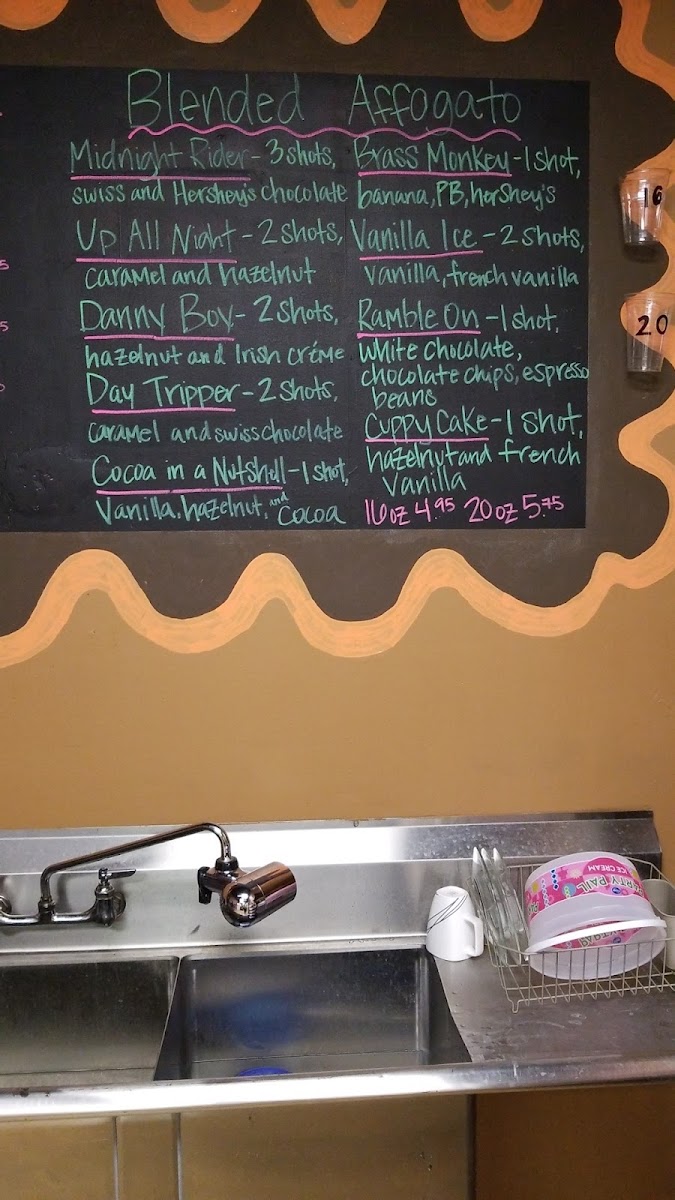 Blended Affogato
Midnight Rider - 3 shots,
swiss and Hershey's chocolate
Up All Night - 2 shots,
caramel and hazelnut
Danny Boy - 2 shots,
hazelnut and Irish créme
Day Tripper - 2 shots,
caramel and swiss chocolate
Cocoa in a Nutshell - 1 shot,
Vanilla, hazelnut, and cocoa
Brass Monkey - 1 shot,
banana, PB, hershey's
Vanilla Ice - 2 shots,
vanilla, french vanilla
Ramble On - 1 shot,
white chocolate,
chocolate chips, espresso
beans
Cuppy Cake - 1 shot,
hazelnut and french
vanilla
16 oz 4.95 20 oz 5.75
16
20
5
5
ICE CREAM
PARTY PAIL